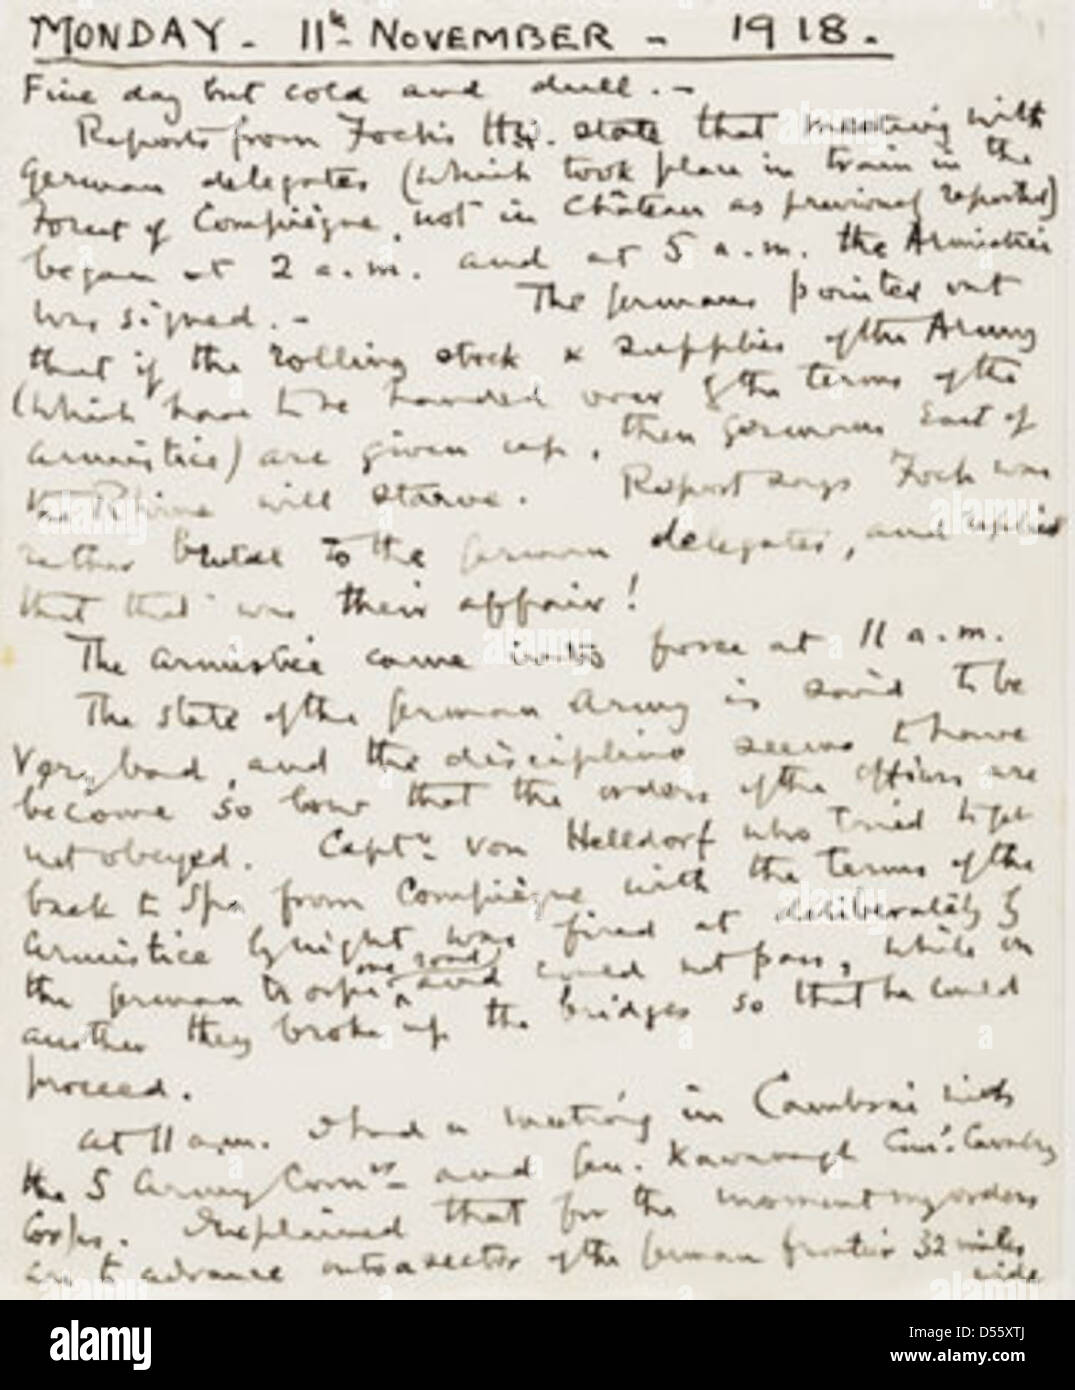 MONDAY - 11th NOVEMBER - 1918.
Fine day but cold and dull. -
Reports from Foch's H.Q. state that meeting with
German delegates (which took place in train in the
Forest of Compiègne, not in Château as previously reported)
began at 2 a.m. and at 5 a.m. the Armistice
was signed. - The Germans pointed out
that if the rolling stock & supplies of the Army
(which have to be handed over by the terms of the
armistice) are given up, then Germans East of
the Rhine will starve. Report says Foch was
rather brutal to the German delegates, and replied
that that was their affair!
The armistice came into force at 11 a.m.
The state of the German Army is said to be
very bad, and the discipline seems to have
become so low that the orders of the officers are
not obeyed. Captn. von Helldorf who tried to get
back to Spa from Compiègne with the terms of the
armistice by night, was fired at deliberately by
the German troops on one road and could not pass, while on
another they broke up the bridges so that he could
proceed.
at 11 a.m. I had a meeting in Cambrai with
the 5 Army Comrs. and Gen. Kavanagh Comg. Cavalry
Corps. I explained that for the moment my orders
are to advance onto a sector of the German frontier 32 miles
wide
alamy
alamy
Image ID: D55XTJ
www.alamy.com